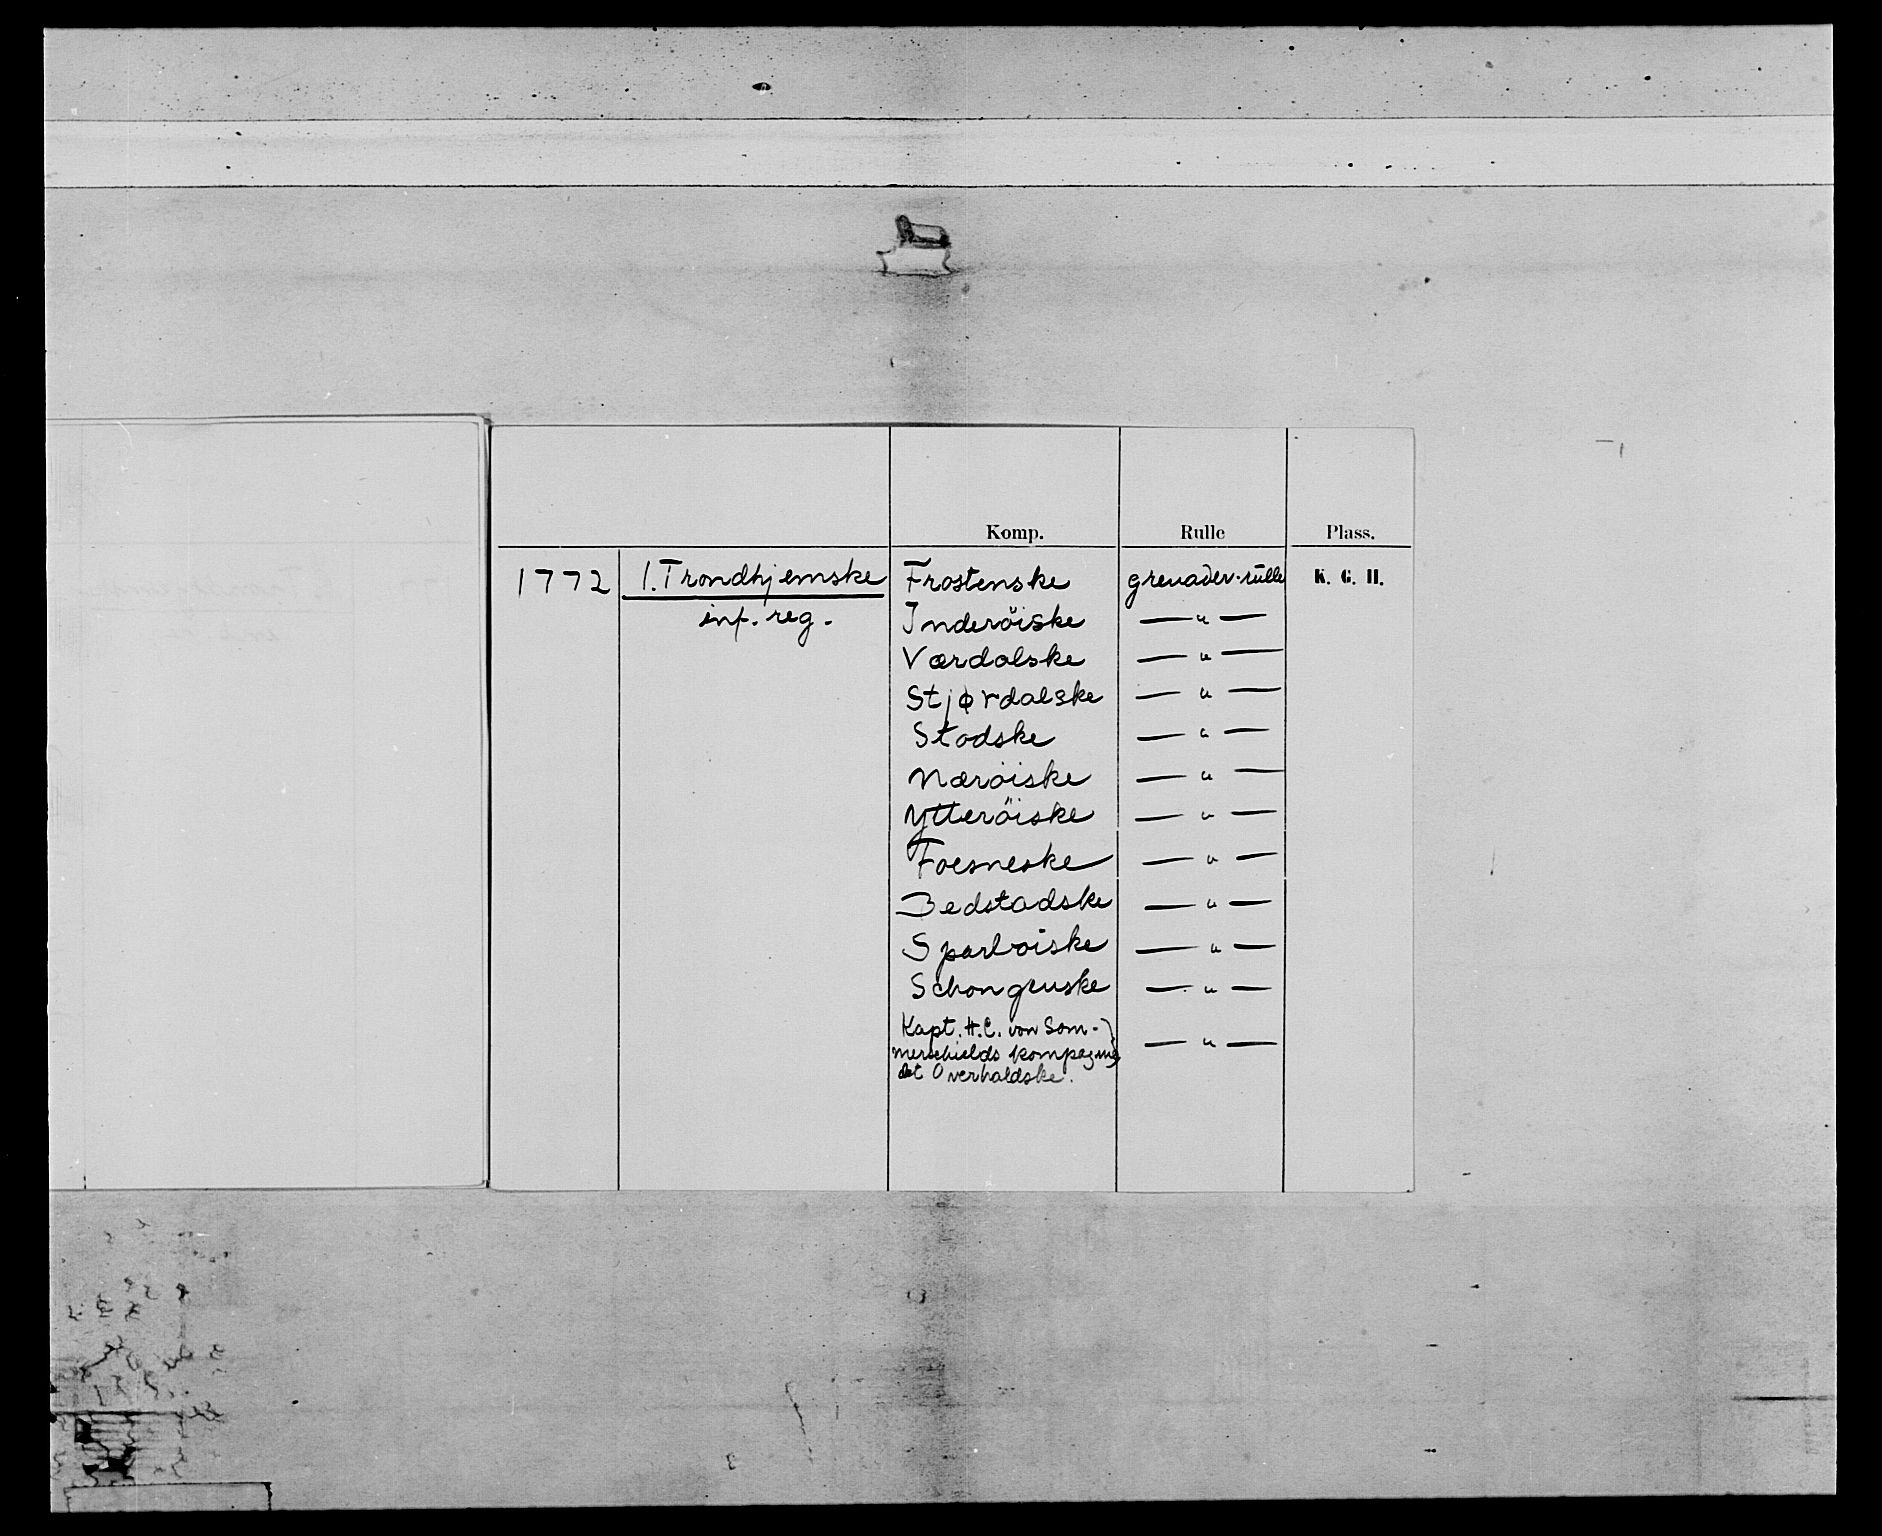 Komp. Rulle Plass.
1772 1. Trondhjemske Frostenske grenader-rulle K. G. H.
inf. reg. Inderöiske — " —
Værdalske — " —
Stjørdalske — " —
Stodske — " —
Næröiske — " —
Ytteröiske — " —
Foesneske — " —
Bedstadske — " —
Sparboiske — " —
Schongnske — " —
Kapt. H.C. von Som-
merschields kompagni — " —
det Overhaldske.